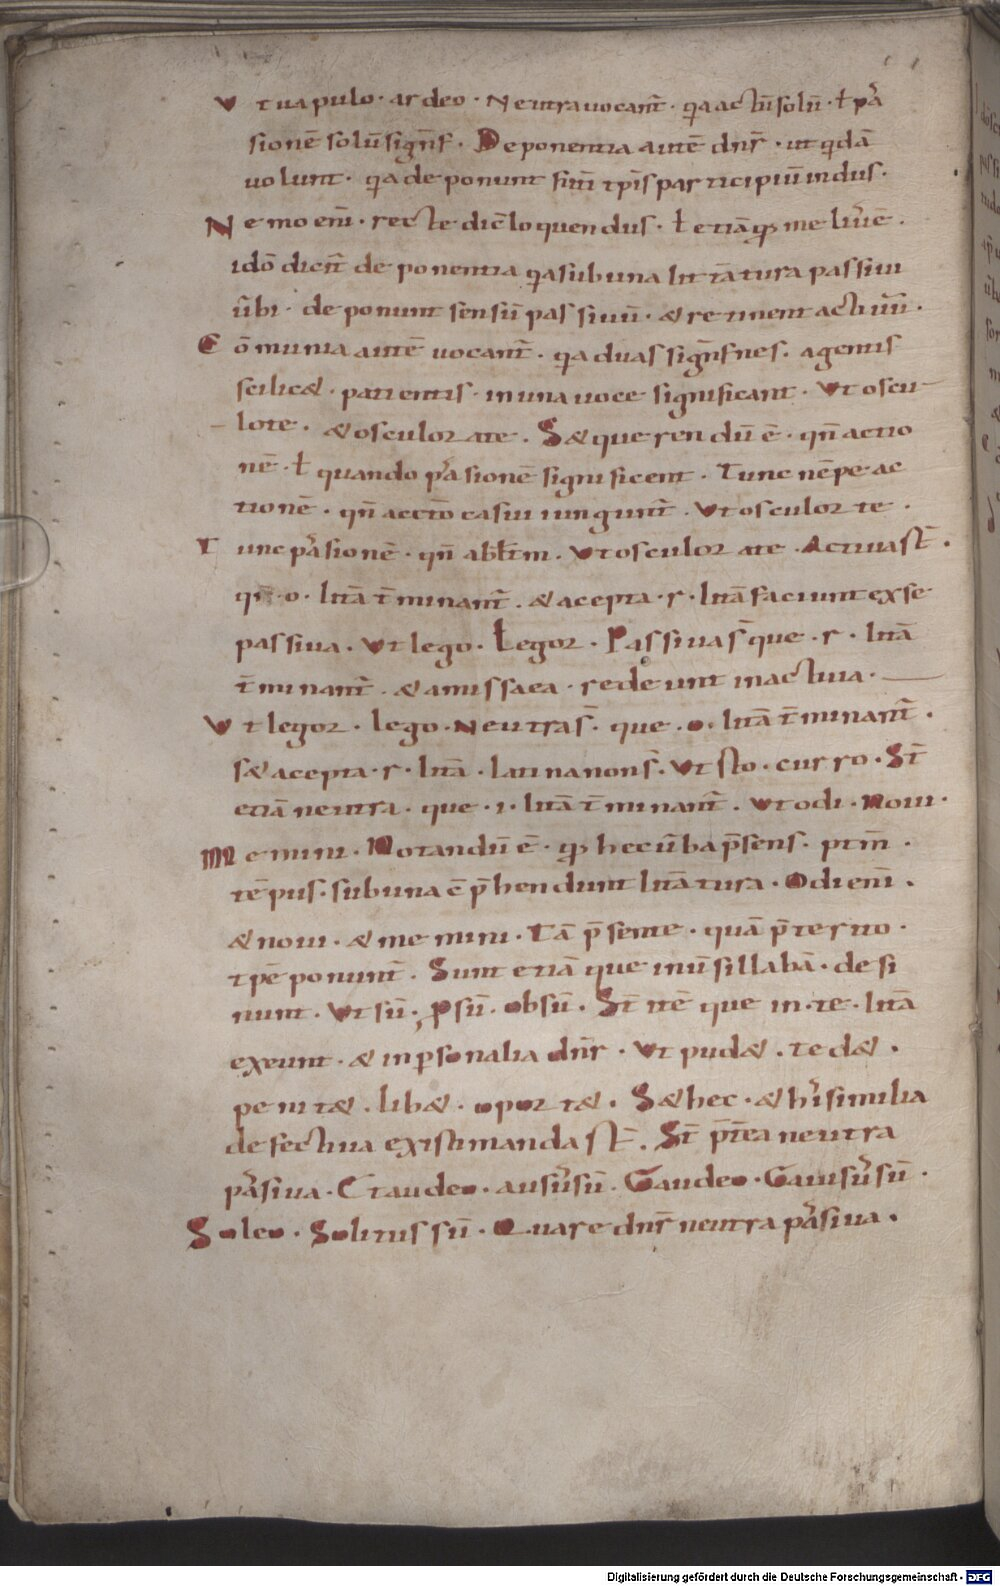 Vt uapulo · ardeo · Neutra uocant̄ · q̨a actū solū · ł pa
sionē solū signf̄ · Deponentia autē dnr̄ · ut q̨dā
uolunt · q̨a deponunt futī tp̄is participiū in dus ·
Nemo enī · recte dic̄ loquendus · ł etiā qꝫ meliuſē ·
idō dicn̄t deponentia q̨a sub una litt̄atura passiui
ūbi · deponunt sensū passiuū · & retinent actiuū ·
Cōmunia autē uocant̄ · q̨a duas signf̄nes · agentis
scilic& · patientis · in una uoce significant · Vt oscu
lor te · & osculor a te · S& querendū ē · qn̄ actio
nē · ł quando pasionē significent · Tunc nēpe ac
tionē · qn̄ accto casui iungunt̄ · Vt osculor te ·
Tunc pasionē · qn̄ abłtm · Vt osculor a te · Actiua st̄ ·
qn̄ · o · litt̄ā t̄minant̄ · & acepta · r · litt̄ā faciunt ex se
passiua · Vt lego · Legor · Passiua s̄ que · r · litt̄ā
t̄minant̄ · & amissa ea · redeunt in actiua ·
Vt legor · lego · Neutra s̄ · que · o · litt̄ā t̄minant̄ ·
s& acepta · r · litt̄ā · latina non s̄ · Vt sto · curro · St̄
etiā neutra · que · i · litt̄ā t̄minant̄ · Vt odi · Noui ·
Memini · Notandū ē · qꝫ hec ūba p̄sens · ptm̄ ·
tēpus · sub una cp̄hendunt litt̄atura · Odi enī ·
& noui · & memini · Tā p̄sente · quā p̄terito ·
tp̄e ponunt̄ · Sunt etiā que in ū sillabā · desi
nunt · Vt sū · ꝓsū · obsū · St̄ itē que in · te · litt̄ā
exeunt · & inp̱sonalia dnr̄ · Vt pud& · ted& ·
penit& · lib& · oport& · S& hec · & hi̓s similia
defectiua existimanda st̄ · St̄ p̄t̄ea neutra
pasiua · Ct audeo · ausus̓ sū · Gaudeo · Gauisus̓ sū ·
Soleo · Solitus sū · Quare dnr̄ neutra pasiua ·
Digitalisierung gefördert durch die Deutsche Forschungsgemeinschaft · DFG